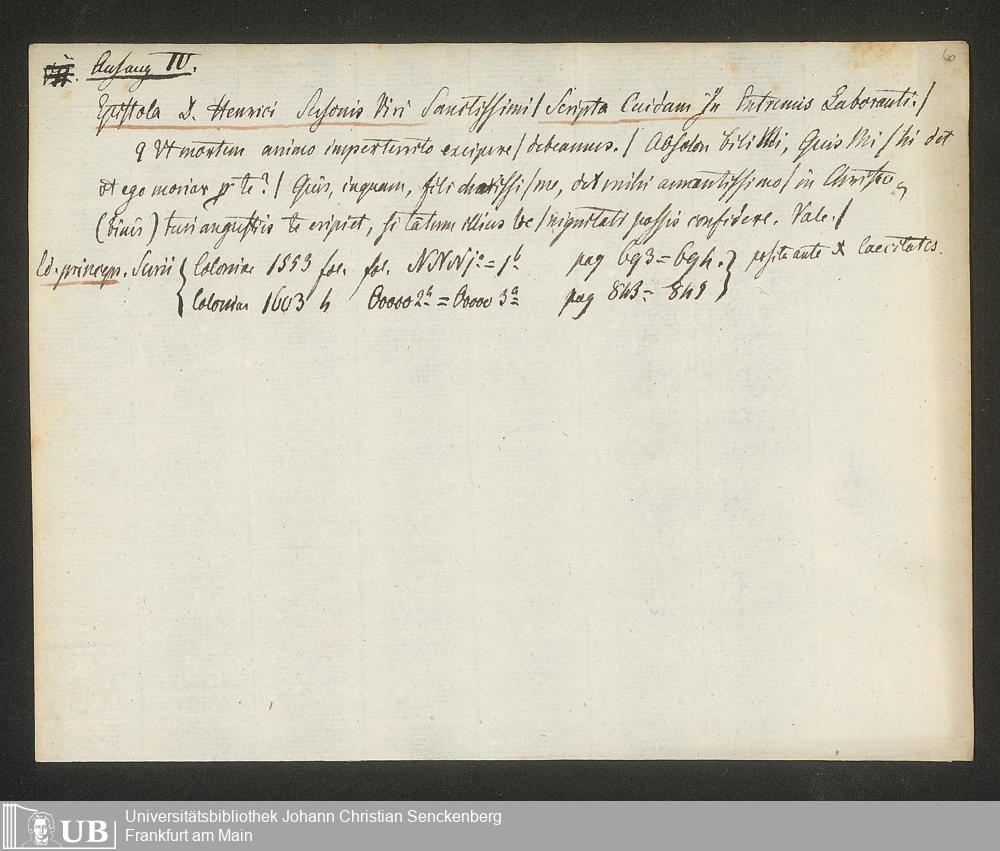 Anhang IV. 6
Epistola D. Henrici Susonis Viri Sanctissimi/ Scripta Cuidam In Extremis Laboranti./
Vt mortem animo imperterrito excipere/ debeamus./ Absolon fili Mi, Quis Mi/hi det
vt ego moriar te?/ Quis, inquam, fili charissi/me, det mihi amantissimo/ in Christo
tuis angustijs te eripiet, si tatum illius be/nignitati possis confidere. Vale./
Ed. princeps. Surii { Coloniae 1553 fol. fol. NNN = pag 693=694. } Taciturnitas
Coloniae 1603 4 Ooooo 2b = Ooooo 3a pag 843=845
Universitätsbibliothek Johann Christian Senckenberg
Frankfurt am Main
UB